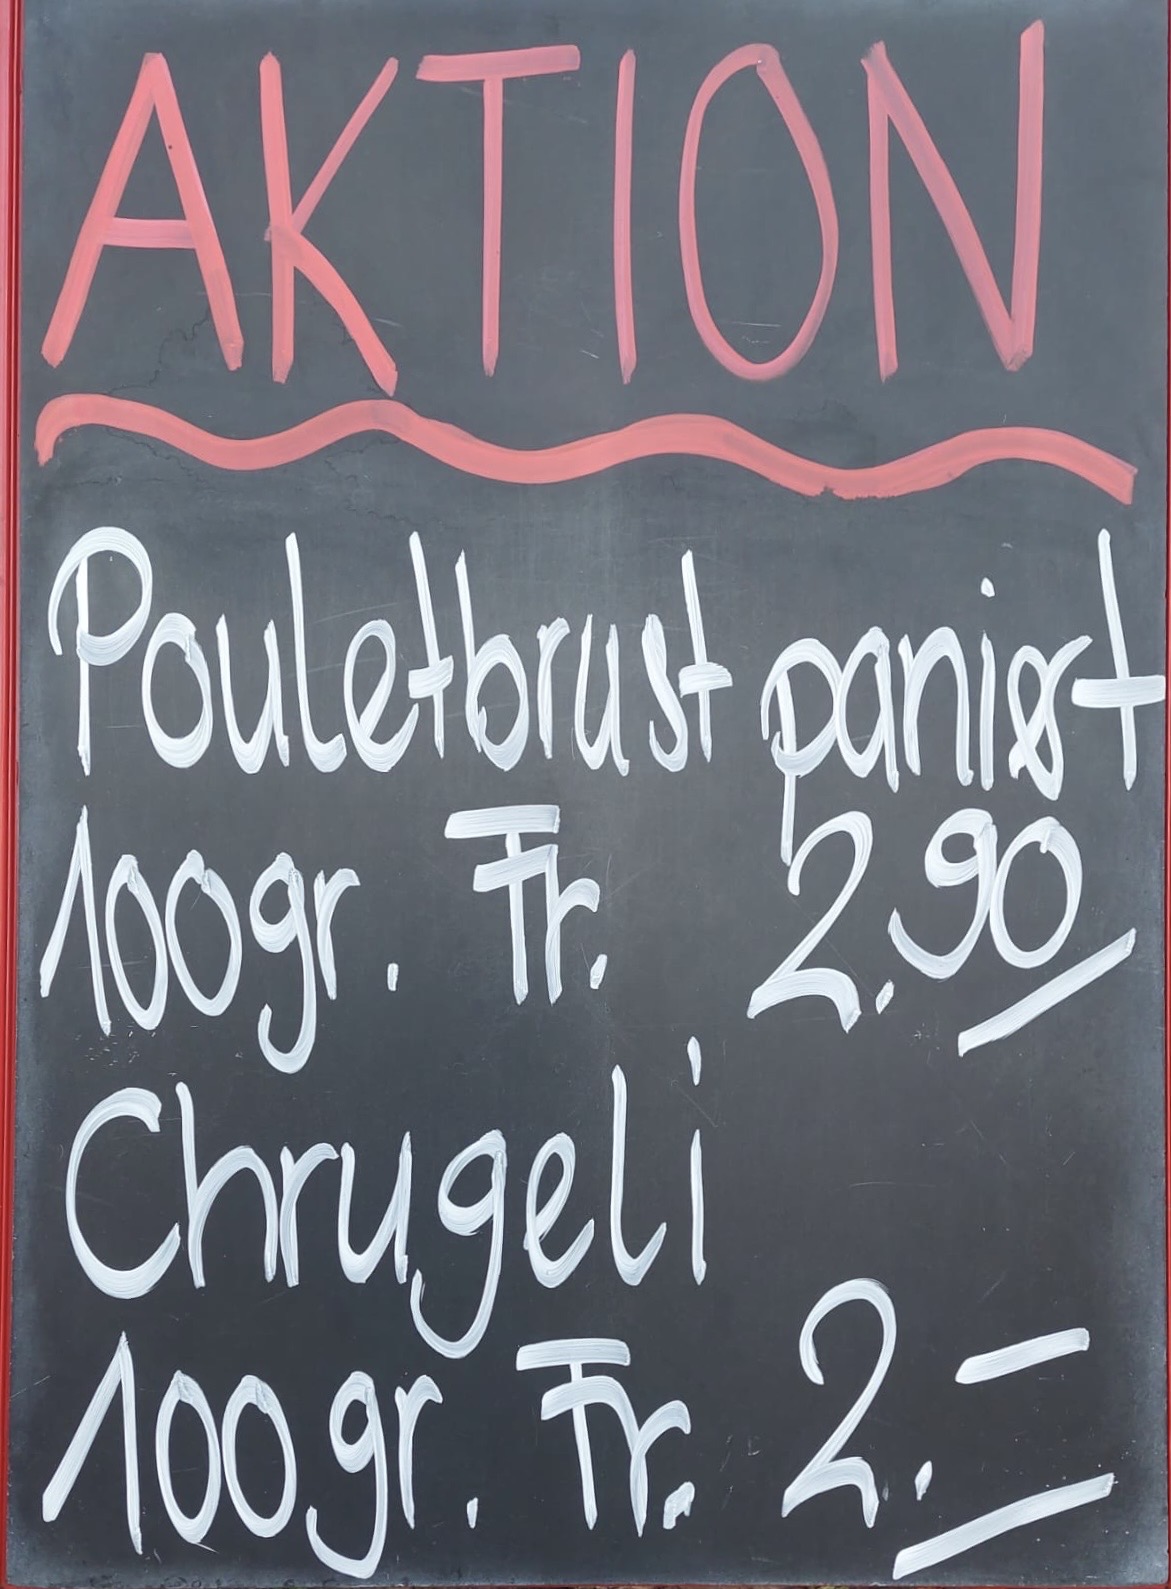 AKTION
Pouletbrust paniert
100gr. Fr. 2.90
Chrugeli
100gr. Fr. 2.–